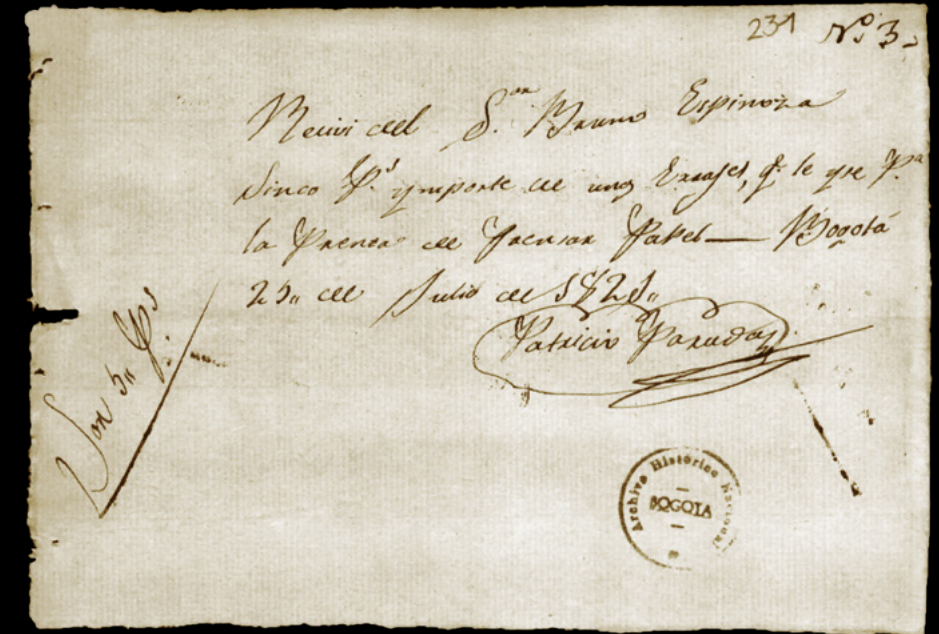 231 No. 3
Recivi del S.or Bruno Espinoza
Sinco P.s ymporte de unos q.e le yse P.a
la Prensa de Papel — Bogotá
25,, de Julio de
Patricio
Son 5,, P.s
Archivo Histórico Nacional
BOGOTA